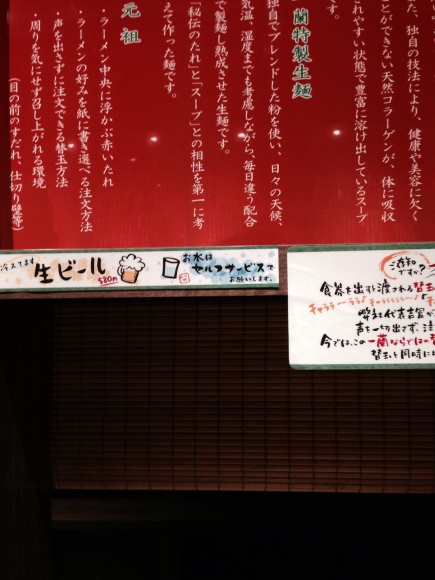 た、独自の技法により、健康や美容に欠く
ことができない天然コラーゲンが、体に吸収
されやすい状態で豊富に溶け出しているスープ
です。
蘭特製生麺
独自でブレンドした粉を使い、日々の天候、
気温、湿度までも考慮しながら、毎日違う配合
で製麺し熟成させた生麺です。
「秘伝のたれ」と「スープ」との相性を第一に考
えて作った麺です。
元祖
・ラーメン中央に浮かぶ赤いたれ
・ラーメンの好みを紙に書き選べる注文方法
・声を出さずに注文できる替玉方法
・周りを気にせず召し上がれる環境
(目の前のすだれ、仕切り壁等)
冷えてます
生ビール
580円
お水は
セルフサービスで
お願いします。
ご存知
ですか?
食器を出すと渡される替玉
チャララ〜ララ♪チャララララララ〜♪
弊社代表吉冨が
声を一切出さず、注
今では、この一蘭ならではの替
替玉と同時に